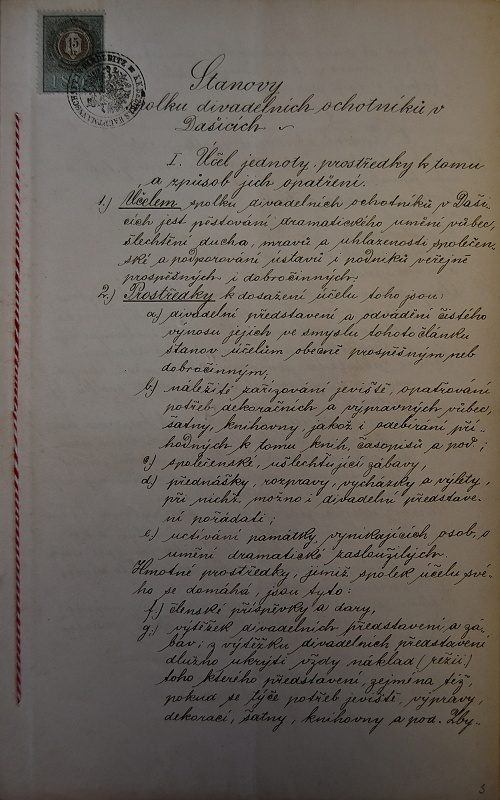 Stanovy
spolku divadelních ochotníků v
Dašicích
I. Účel jednoty, prostředky k tomu
a způsob jich opatření.
1.) Účelem spolku divadelních ochotníků v Daši-
cích jest pěstování dramatického umění vůbec,
šlechtění ducha, mravů a uhlazenosti společen-
ské a podporování ústavů i podniků veřejně
prospěšných i dobročinných.
2.) Prostředky k dosažení účelu toho jsou:
a) divadelní představení a odvádění čistého
výnosu jejich ve smyslu tohoto článku
stanov účelům obecně prospěšným neb
dobročinným.
b) náležité zařizování jeviště, opatřování
potřeb dekoračních a výpravných vůbec,
šatny, knihovny, jakož i odebírání pří-
hodných k tomu knih, časopisů a pod.;
c) společenské, ušlechťující zábavy,
d) přednášky, rozpravy, vycházky a výlety,
při nichž možno i divadelní představe-
ní pořádati;
e) uctívání památky vynikajících osob, o
umění dramatické zasloužilých.
Hmotné prostředky, jimiž spolek účelu své-
ho se domáhá, jsou tyto:
f.) členské příspěvky a dary,
g.) výtěžek divadelních představení a zá-
bav; z výtěžku divadelních představení
dlužno ukrýti vždy náklad (režii)
toho kterého představení, zejména též,
pokud se týče potřeb jeviště, výpravy,
dekorací, šatny, knihovny a pod. Zby-
15
3